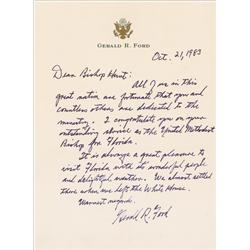 GERALD R. FORD
Oct. 21, 1983
Dear Bishop Hunt:
All of us in this
great nation are fortunate that you and
countless others are dedicated to the
ministry. I congratulate you on your
outstanding service as the United Methodist
Bishop for Florida.
It is always a great pleasure to
visit Florida with its wonderful people
and delightful weather. We almost settled
there when we left the White House.
Warmest regards,
Gerald R. Ford